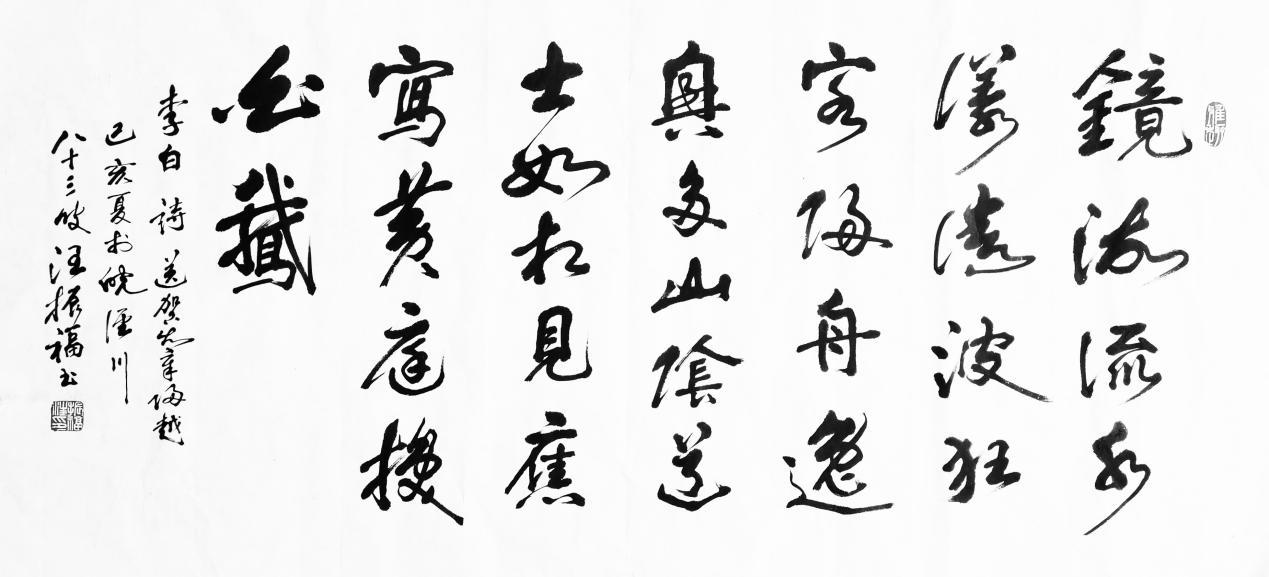 鏡湖流水
漾清波狂
客歸舟逸
興多山陰道
士如相見應
寫黃庭換
白鵝
李白詩 送賀知章歸越
己亥夏於皖涇川
八十三叟汪振福书